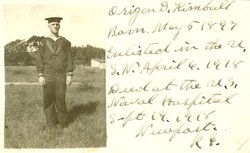 Origen D. Kimball
Born May 5 1897
Enlisted in the U.
S. N. April 6, 1918
Died at the U.S.
Naval Hospital
Sept 19. 1918
Newport
R I.